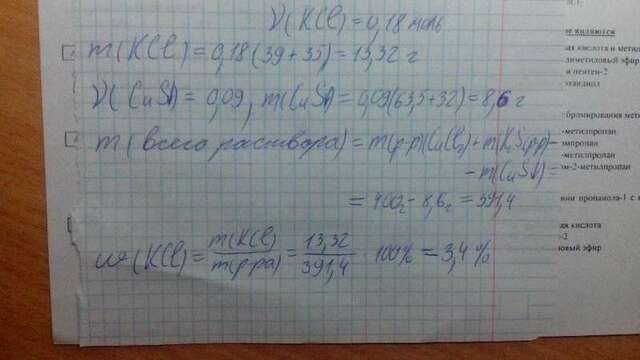 ν(KCl) = 0,18 моль
m(KCl) = 0,18(39 + 35) = 13,32 г
ν(CuS) = 0,09, m(CuS) = 0,09(63,5+32) = 8,6 г
m(всего раствора) = m(р-р CuCl₂) + m(K₂S р-р) -
- m(CuS) =
= 400г - 8,6г = 391,4
ω(KCl) = m(KCl)/m(р-ра) = 13,32/391,4 · 100% = 3,4 %
не являются
ая кислота и метил
диметиловый эфир
и пентен-2
этандиол
бромирования мета
-метилпропан
мпропан
-метилпропан
ом-2-метилпропан
нии пропанола-1 с
ая кислота
-2
ловый эфир